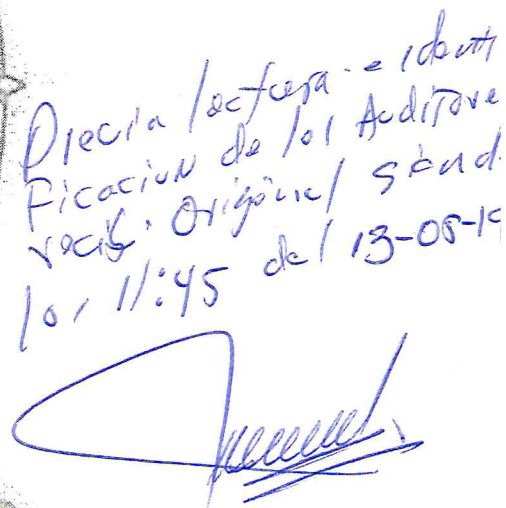 Previa lectura e identi
ficacion de los Auditore
recibi Original siend
las 11:45 del 13-05-19